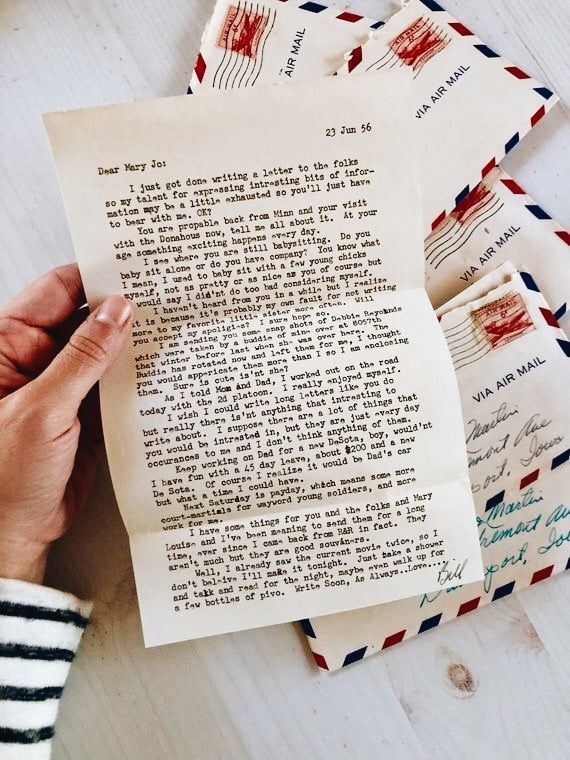 VIA AIR MAIL
VIA AIR MAIL
VIA AIR MAIL
AIR MAIL
23 Jun 56
Dear Mary Jo:
I just got done writing a letter to the folks
so my talent for expressing intresting bits of infor-
mation may be a little exhausted so you'll just have
to bear with me. OK?
You are propable back from Minn and your visit
with the Donahous now, tell me all about it. At your
age something exciting happens every day.
I see where you are still babysitting. Do you
baby sit alone or do you have company? You know what
I mean, I used to baby sit with a few young chicks
myself, not as pretty or as nice as you of course but
would say I did'nt do too bad considering myself.
I haven't heard from you in a while but I realize
it is because it's probably my own fault for not writing
more to my favorite little sister more often. Will
you accept my apoligies? I sure hope so.
I am sending you some snap shots of Debbie Reyonlds
which were taken by a buddie of mine over at 8057th
that winter before last when she was over here. The
Buddie has rotated now and left them for me, I thought
you would appericate them more than I so I am enclosing
them. Sure is cute is'nt she?
As I told Mom And Dad, I worked out on the road
today with the 2d platoon. I really enjoyed myself.
I wish I could write long letters like you do
but really there is'nt anything that intresting to
write about. I suppose there are a lot of things that
you would be intrested in, but they are just every day
occurances to me and I don't think anything of them.
Keep working on Dad for a new DeSota, boy, would'nt
I have fun with a 45 day leave, about $200 and a new
De Sota. Of course I realize it would be Dad's car
but what a time I could have.
Next Saturday is payday, which means some more
court-martials for wayword young soldiers, and more
work for me.
I have some things for you and the folks and Mary
Louise and I've been meaning to send them for a long
time, ever since I came back from R&R in fact. They
aren't much but they are good souvaners.
Well, I already saw the current movie twice, so I
don't beleive I'll make it tonight. Just take a shower
and talk and read for the night, maybe even walk up for
a few bottles of pivo. Write Soon, As Always..Love....
Bill
Martin
Iowa
Martin
Iowa